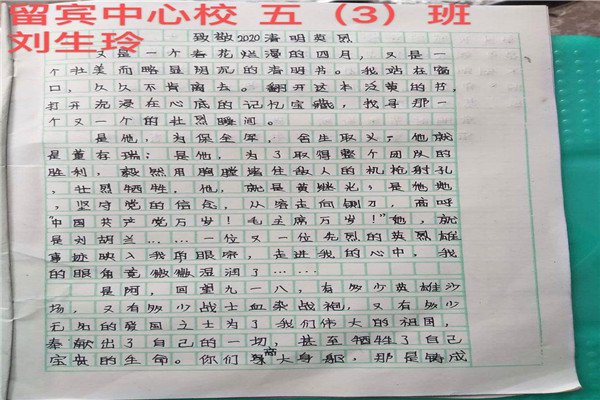 留宾中心校 五（3）班
刘生玲
致敬2020清明英灵
又是一个春花烂漫的四月，又是一
个壮美而略显阴沉的清明节。我站在窗
口，久久不肯离去。翻开这本泛黄的书，
打开沉浸在心底的记忆宝藏，找寻那一
个又一个的壮烈瞬间。
是他，为保全军，舍生取义，他就
是董存瑞；是他，为了取得整个团队的
胜利，毅然用胸膛堵住敌人的机枪射孔
，壮烈牺牲。他，就是黄继光；是他她
，坚守党的信念，从容走向铡刀，高呼
“中国共产党万岁！毛主席万岁！”她，就
是刘胡兰……一位又一位先烈的英烈雄
事迹映入我的眼帘，走进我的心中，我
的眼角竟微微湿润了……
是阿，回望九一八，有多少英雄沙
场，又有多少战士血染战袍，又有多少
无名的爱国之士为了我们伟大的祖国，
奉献出了自己的一切，甚至牺牲了自己
宝贵的生命。你们高大身躯，那是铸成